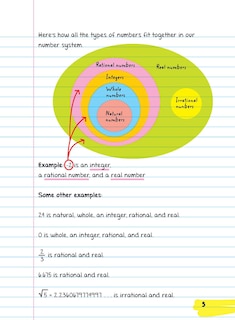 Here's how all the types of numbers fit together in our
number system.
Rational numbers
Real numbers
Integers
Whole
numbers
Irrational
numbers
Natural
numbers
Example: -2 is an integer,
a rational number, and a real number
Some other examples:
is natural, whole, an integer, rational, and real.
0 is whole, an integer, rational, and real.
is rational and real.
6.675 is rational and real.
√5 = 2.2360679774997... is irrational and real.
5